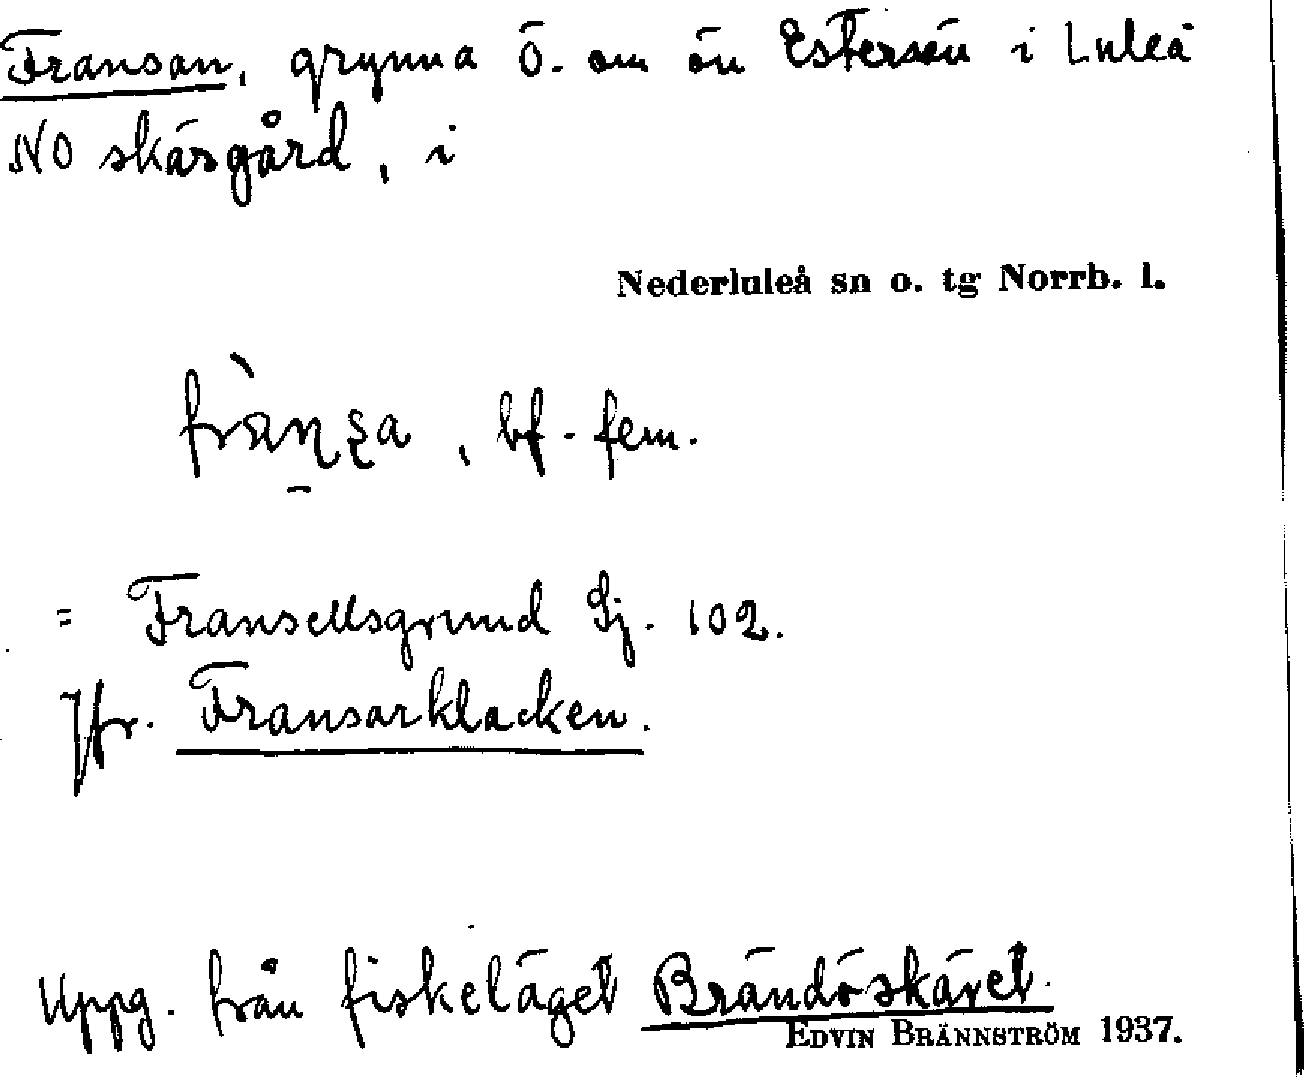 Fransan, grynna ö. om ön Estersön i Luleå
NO skärgård, i
Nederluleå sn o. tg Norrb. l.
, bf. fem.
= Fransellsgrund Sj. 102.
Jfr. Fransarklacken.
Uppg. från fiskeläget Brändöskäret.
EDVIN BRÄNNSTRÖM 1937.